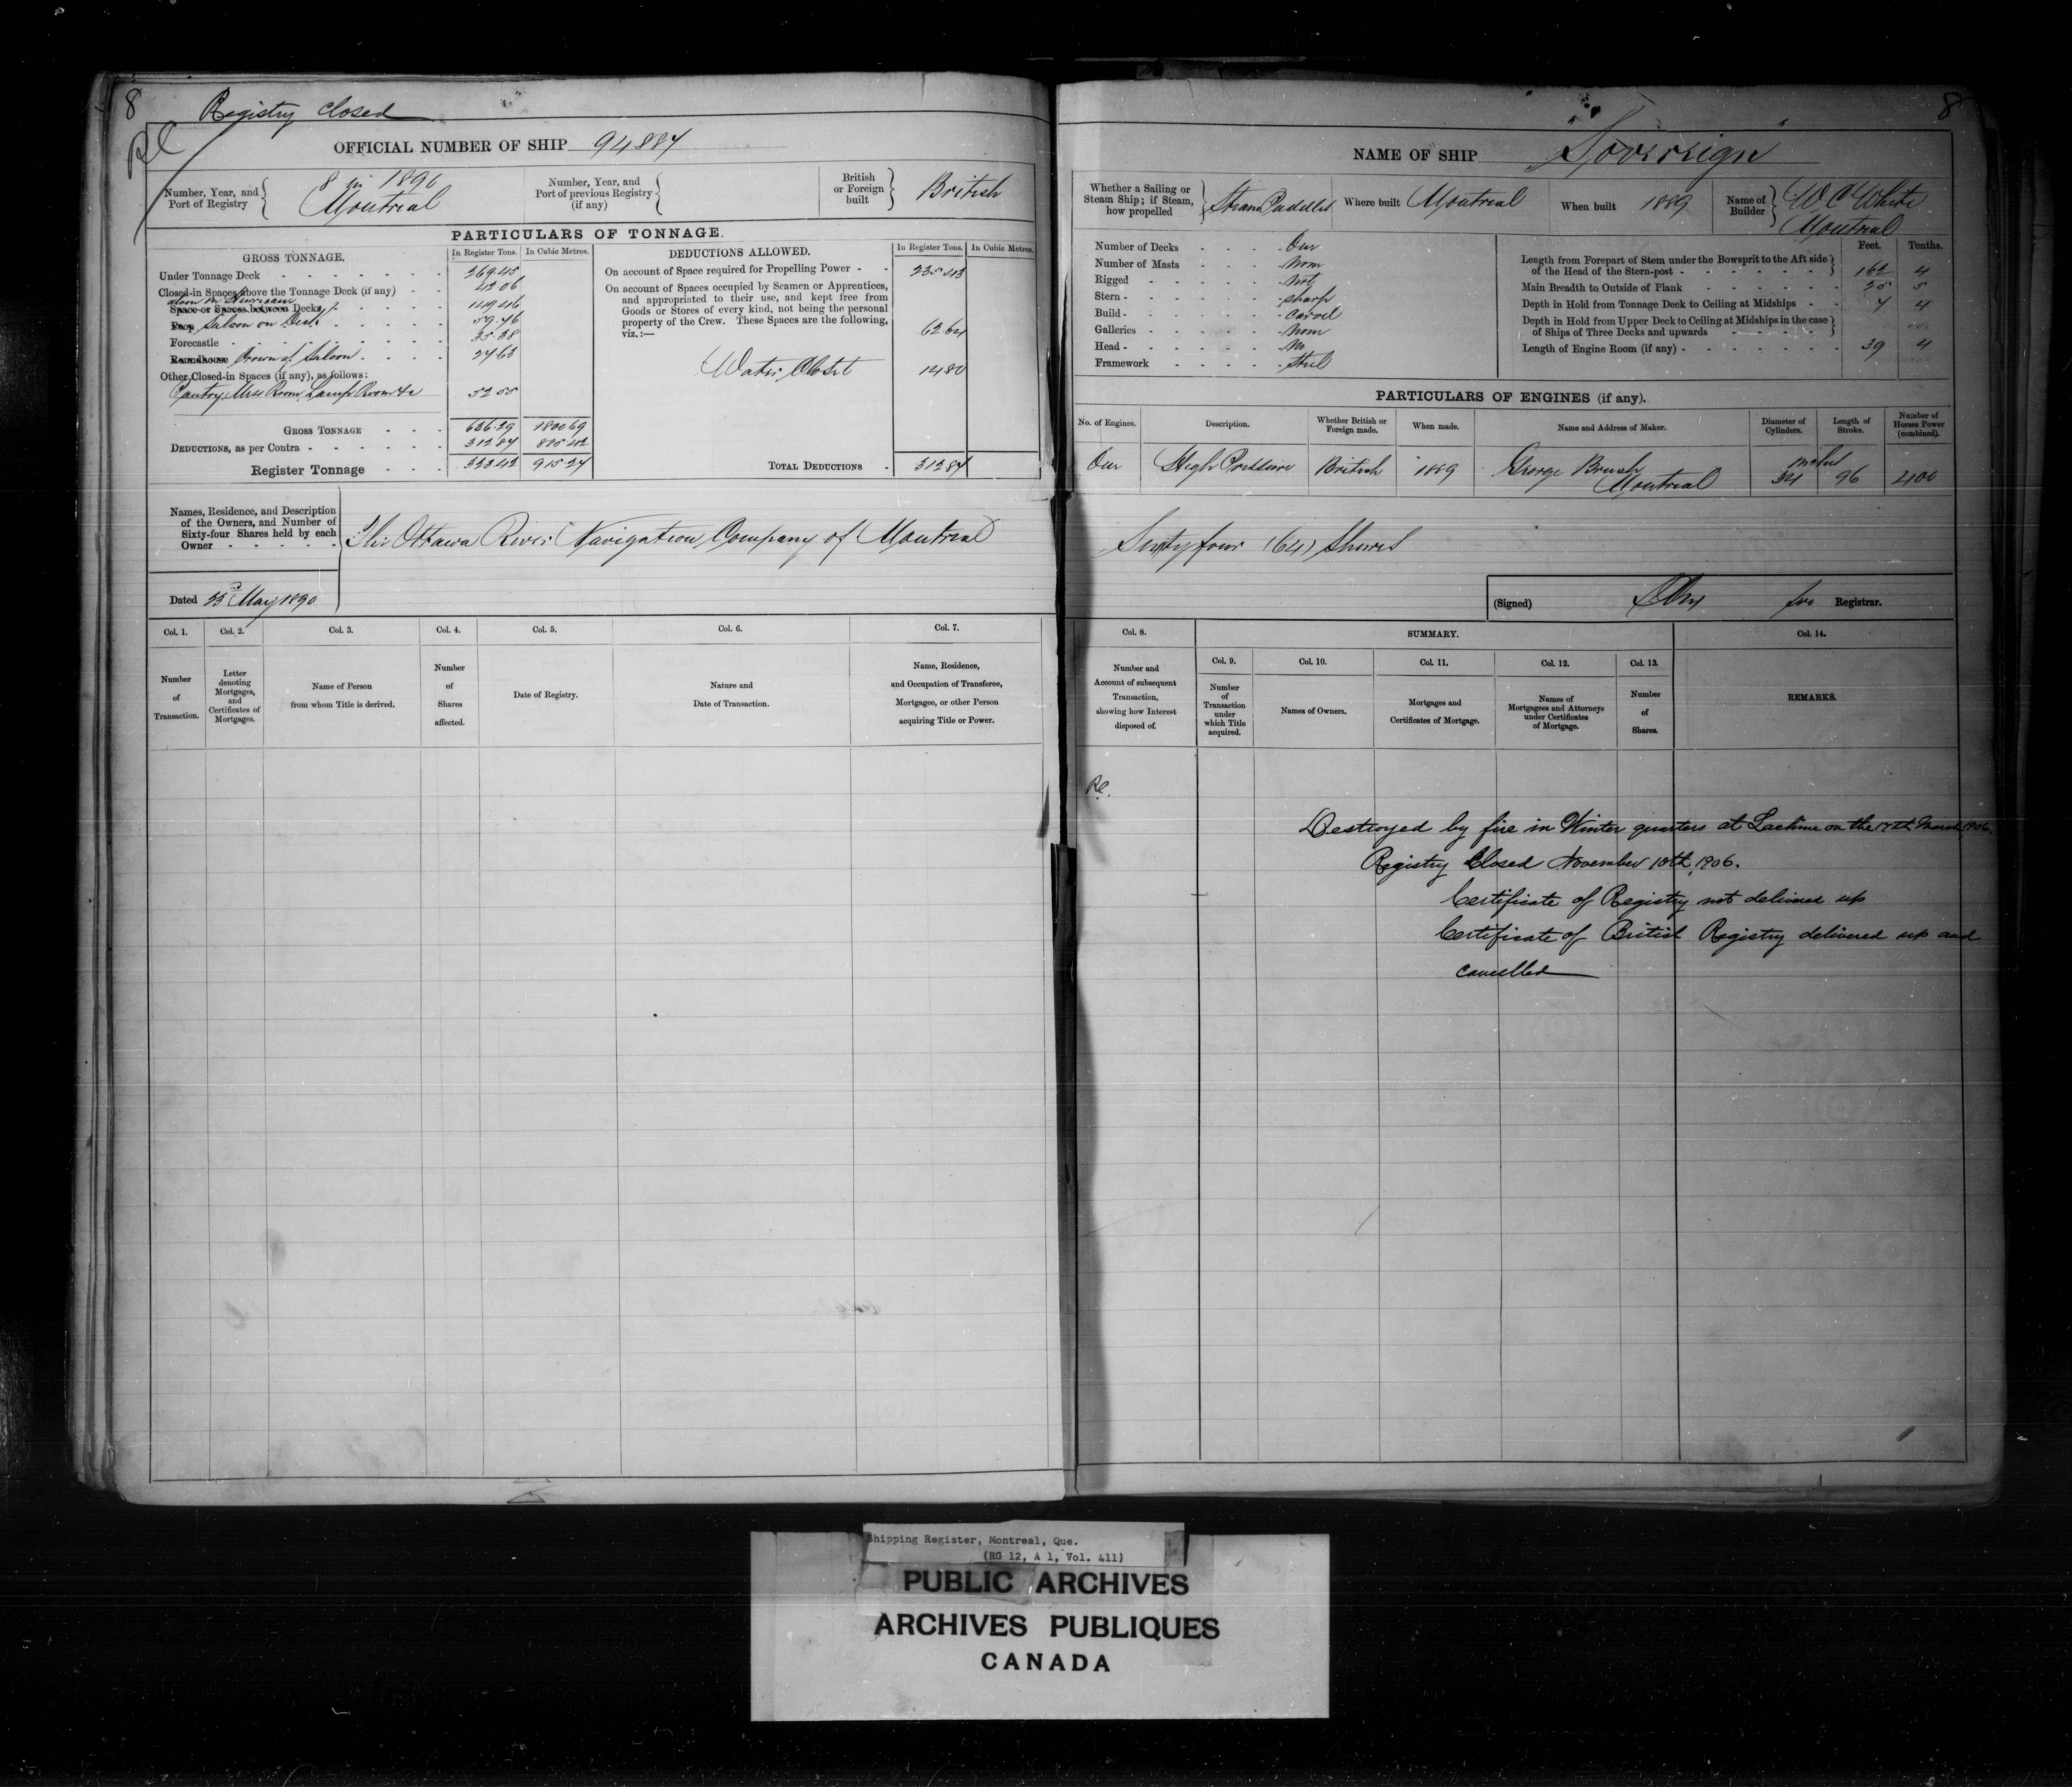 8
Registry closed
RC
OFFICIAL NUMBER OF SHIP 94887
Number, Year, and Port of Registry { 8 in 1890 Montreal
Number, Year, and Port of previous Registry (if any) {
British or Foreign built } British
PARTICULARS OF TONNAGE.
GROSS TONNAGE. In Register Tons. In Cubic Metres.
Under Tonnage Deck 269.45
Closed-in Spaces above the Tonnage Deck (if any) 42 06
Space or Spaces between Decks Saloon on Hurricane 149 46
Poop Saloon on Deck 59.46
Forecastle 35.38
Roundhouse Crown of Saloon 27 63
Other Closed-in Spaces (if any), as follows:
Pantry, Mess Room, Lamp Room &c 52 55
GROSS TONNAGE 636.29 1800 69
DEDUCTIONS, as per Contra 312 87 885 42
Register Tonnage 323.42 915 27
DEDUCTIONS ALLOWED. In Register Tons. In Cubic Metres.
On account of Space required for Propelling Power 235 43
On account of Spaces occupied by Seamen or Apprentices,
and appropriated to their use, and kept free from
Goods or Stores of every kind, not being the personal
property of the Crew. These Spaces are the following,
viz.:— 62 64
Water Closet 14 80
TOTAL DEDUCTIONS 312 87
Names, Residence, and Description
of the Owners, and Number of
Sixty-four Shares held by each
Owner
The Ottawa River Navigation Company of Montreal
Dated 23d May 1890
Col. 1. Col. 2. Col. 3. Col. 4. Col. 5. Col. 6. Col. 7.
Number of Transaction.
Letter denoting Mortgages, and Certificates of Mortgages.
Name of Person from whom Title is derived.
Number of Shares affected.
Date of Registry.
Nature and Date of Transaction.
Name, Residence, and Occupation of Transferee, Mortgagee, or other Person acquiring Title or Power.
8
NAME OF SHIP "Sovereign"
Whether a Sailing or Steam Ship; if Steam, how propelled } Steam Paddles
Where built Montreal
When built 1889
Name of Builder } W C White Montreal
Number of Decks One
Number of Masts None
Rigged Not
Stern sharp
Build Carvel
Galleries None
Head No
Framework Steel
Feet. Tenths.
Length from Forepart of Stem under the Bowsprit to the Aft side
of the Head of the Stern-post 162 4
Main Breadth to Outside of Plank 25 5
Depth in Hold from Tonnage Deck to Ceiling at Midships 7 4
Depth in Hold from Upper Deck to Ceiling at Midships in the case
of Ships of Three Decks and upwards
Length of Engine Room (if any) 39 4
PARTICULARS OF ENGINES (if any).
No. of Engines. Description. Whether British or Foreign made. When made. Name and Address of Maker. Diameter of Cylinders. Length of Stroke. Number of Horses Power (combined).
One High Pressure British 1889 George Brush Montreal inches 34 96 400
Sixty four (64) Shares
(Signed) for Registrar.
Col. 8. SUMMARY. Col. 14.
Col. 9. Col. 10. Col. 11. Col. 12. Col. 13.
Number and Account of subsequent Transaction, showing how Interest disposed of.
Number of Transaction under which Title acquired.
Names of Owners.
Mortgages and Certificates of Mortgage.
Names of Mortgagees and Attorneys under Certificates of Mortgage.
Number of Shares.
REMARKS.
RC.
Destroyed by fire in Winter quarters at Lachine on the 17th March 1906.
Registry Closed November 10th, 1906.
Certificate of Registry not delivered up
Certificate of British Registry delivered up and
cancelled
Shipping Register, Montreal, Que.
(RG 12, A 1, Vol. 411)
PUBLIC ARCHIVES
ARCHIVES PUBLIQUES
CANADA